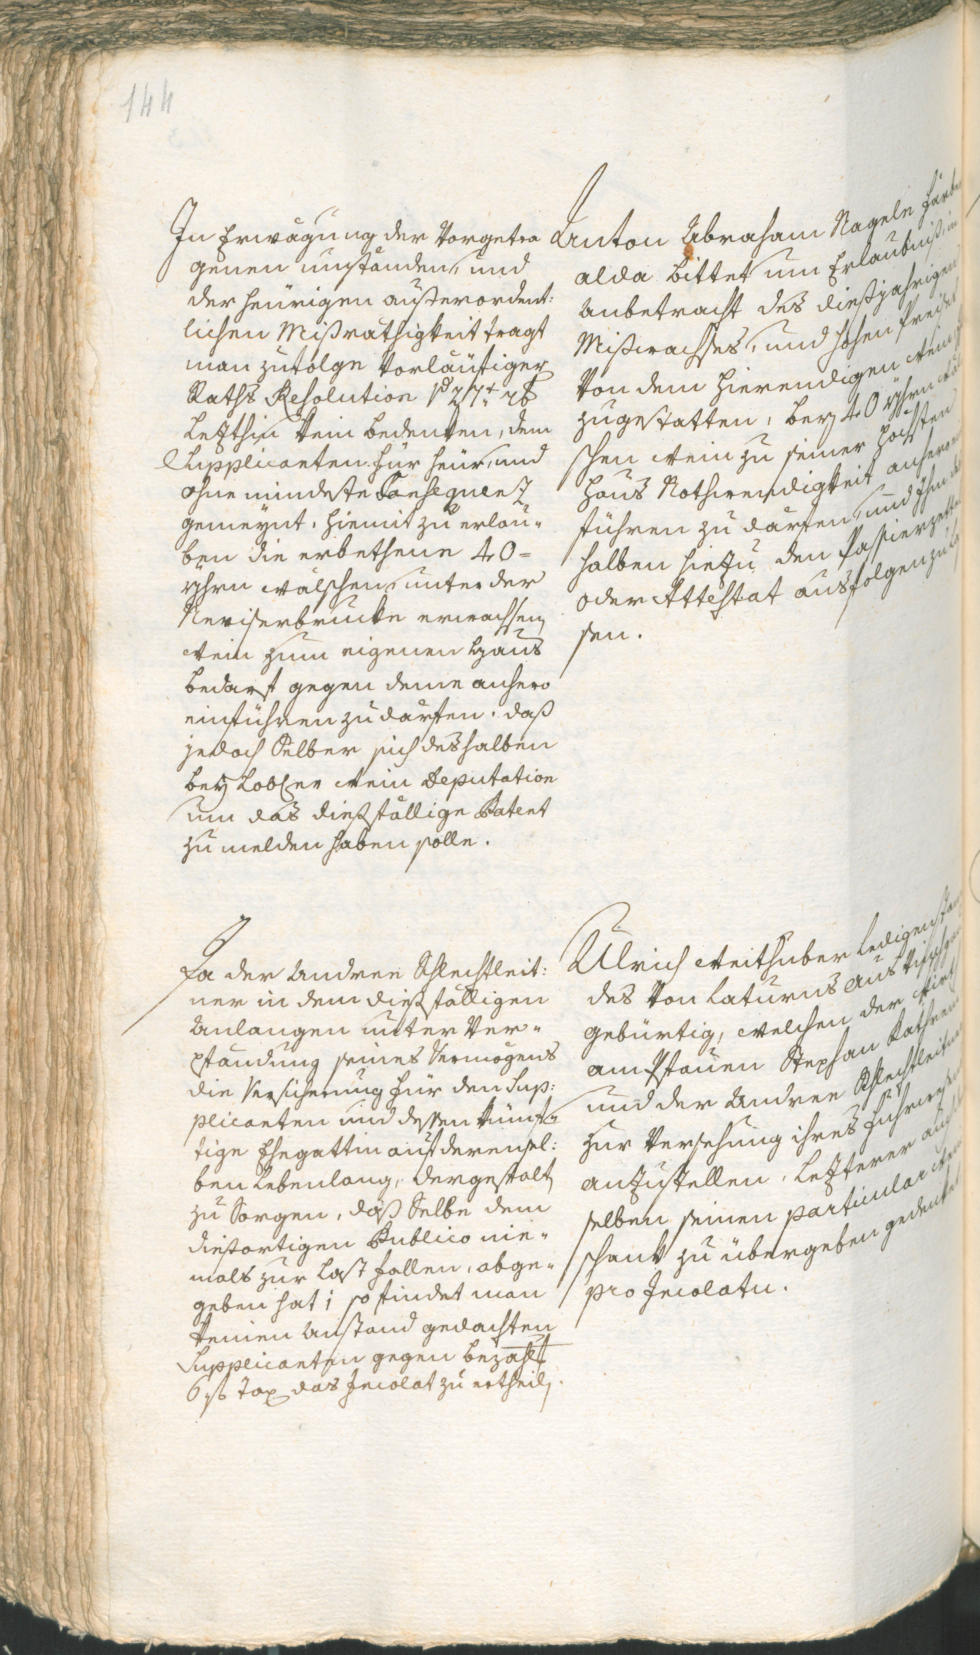 144
In Erwägung der Vorgetra
genen umständen, und
der heürigen außerordent:
lichen Mißräthigkeit tragt
man zufolge Vorläufiger
Raths Resolution
letzthin kein bedenken, dem
Supplicanten für heür, und
ohne mindeste Consequenz
gemeynt, hiemit zu erlau„
ben die erbethene 40=
yhrn wälschen, unter der
Neviserbrucke erwachsen
Wein zum eigenen Haus
bedarf gegen deme anhero
einführen zu därfen, daß
jedoch selber sich deshalben
bey Lobler Wein Deputation
um das dießfällige Patent
zu melden haben solle.
Anton Abraham Nagele Färber
alda bittet um Erlaubniß, in
anbetracht des dießjährigen
Mißwachses, und hohen Preises
von dem hierendigen Wein
zugestatten, bey 40 yhrn wäl
schen Wein zu seiner höchsten
Haus Nothwendigkeit anhero
führen zu därfen, und Ihm des
halben hiezu den Passierzettl
oder Attestat ausfolgen zu las
sen.
Ja der Andree Schlechtleit:
ner in dem dießfälligen
Anlangen unter Ver„
pfändung seines Vermögens
die Versicherung für den Sup:
plicanten und dessen künf„
tige Ehegattin auf derensel:
ben lebenlang, dergestalt
zu Sorgen, daß Selbe dem
diesortigen Publico nie„
mals zur Last fallen, abge„
geben hat; so findet man
keinen Anstand gedachten
Supplicanten gegen bezahlt
6 fl Tax das Incolat zu ertheilen.
Ulrich Weithuber ledigen Stan
des von Laturns aus Vischgau
gebürtig, welchen der Wirt
am Pfauen Stephan Kathrein
und der Andree Schlechtleitner
zur Versehung ihres Fuhrwesens
anzustellen, letzterer auch
selben seinen particular Wein
schank zu übergeben gedenket
pro Incolatu.